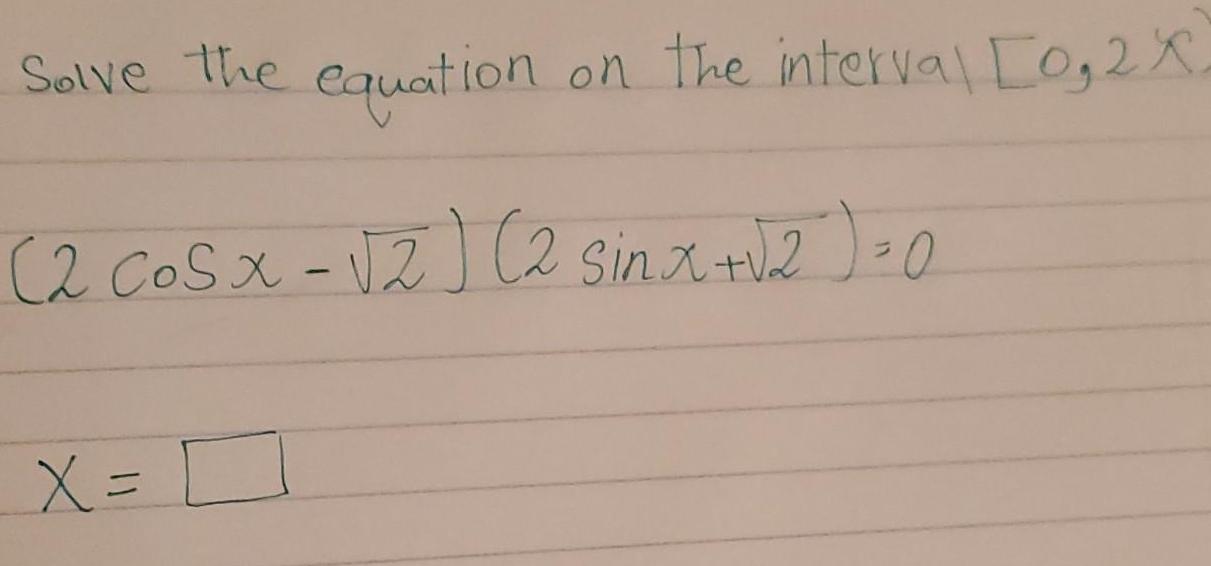 Solve the equation on the interval [0,2π)
(2 cosx - √2)(2 sinx+√2)=0
X = □